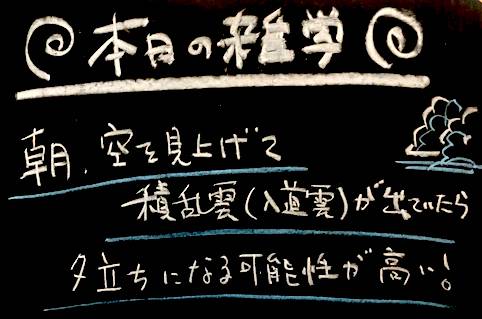 本日の雑学
朝、空を見上げて
積乱雲(入道雲)が出ていたら
夕立ちになる可能性が高い!